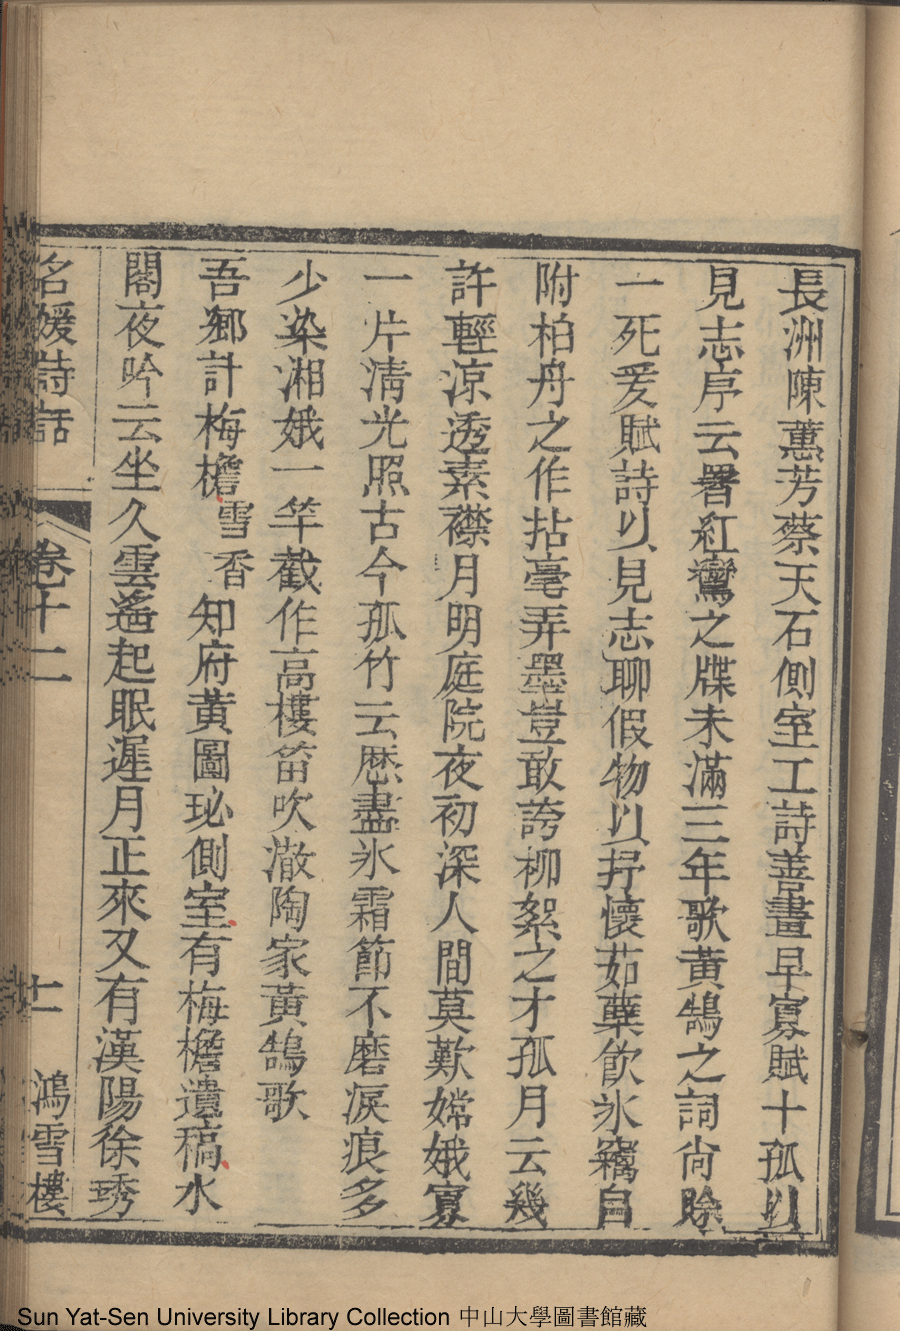 長洲陳蕙芳蔡天石側室工詩善畫早寡賦十孤以
見志序云署紅鸞之牒未滿三年歌黃鵠之詞尙賖
一死爰賦詩以見志聊假物以抒懷茹蘗飮氷竊自
附柏舟之作拈毫弄墨豈敢誇柳絮之才孤月云幾
許輕凉透素襟月明庭院夜初深人間莫歎嫦娥寡
一片淸光照古今孤竹云歴盡氷霜節不磨淚痕多
少染湘娥一竿截作高樓笛吹澈陶家黃鵠歌
吾鄉計梅檐雪香知府黃圖珌側室有梅檐遺稿水
閣夜吟云坐久雲遙起眠遲月正來又有漢陽徐琇
名媛詩話 卷十二 十一 鴻雪樓
Sun Yat-Sen University Library Collection 中山大學圖書館藏